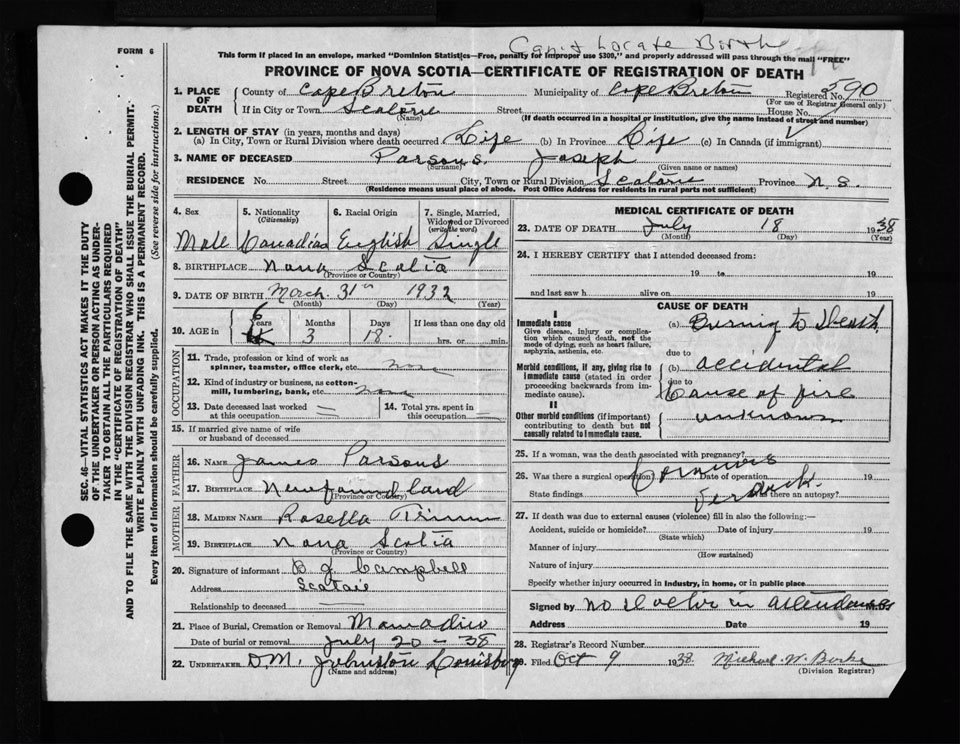 FORM 6
Can't Locate Birth
This form if placed in an envelope, marked "Dominion Statistics—Free, penalty for improper use $300," and properly addressed will pass through the mail "FREE"
PROVINCE OF NOVA SCOTIA—CERTIFICATE OF REGISTRATION OF DEATH
1. PLACE OF DEATH County of Cape Breton Municipality of Cape Breton Registered No. 590
(For use of Registrar General only)
If in City or Town Scatarie Street House No.
(Name) (If death occurred in a hospital or institution, give the name instead of street and number)
2. LENGTH OF STAY (in years, months and days)
(a) In City, Town or Rural Division where death occurred Life (b) In Province Life (c) In Canada (if immigrant)
3. NAME OF DECEASED Parsons. Joseph
(Surname) (Given name or names)
RESIDENCE No. Street City, Town or Rural Division Province N.S.
(Residence means usual place of abode. Post Office Address for residents in rural parts not sufficient)
4. Sex 5. Nationality (Citizenship) 6. Racial Origin 7. Single, Married, Widowed or Divorced (write the word)
Male Canadian English Single
8. BIRTHPLACE Nova Scotia
(Province or Country)
9. DATE OF BIRTH March 31st 1932
(Month) (Day) (Year)
10. AGE in Years Months Days If less than one day old
6 3 18 hrs. or min.
OCCUPATION
11. Trade, profession or kind of work as spinner, teamster, office clerk, etc. none
12. Kind of industry or business, as cotton-mill, lumbering, bank, etc. none
13. Date deceased last worked at this occupation — 14. Total yrs. spent in this occupation —
15. If married give name of wife or husband of deceased
FATHER
16. NAME James Parsons
17. BIRTHPLACE Newfoundland
(Province or Country)
MOTHER
18. MAIDEN NAME Rosella
19. BIRTHPLACE Nova Scotia
(Province or Country)
20. Signature of informant B J Campbell
Address Scatarie
Relationship to deceased —
21. Place of Burial, Cremation or Removal Mainadieu
Date of burial or removal July 20 - 38
22. UNDERTAKER D.M. Johnston Louisburg
(Name and address)
MEDICAL CERTIFICATE OF DEATH
23. DATE OF DEATH July 18 1938
(Month) (Day) (Year)
24. I HEREBY CERTIFY that I attended deceased from:
19 to 19
and last saw h alive on 19
CAUSE OF DEATH
I
Immediate cause
Give disease, injury or complication which caused death, not the mode of dying, such as heart failure, asphyxia, asthenia, etc.
(a) Burning to death
due to
Morbid conditions, if any, giving rise to immediate cause (stated in order proceeding backwards from immediate cause).
(b) accidental
due to
Cause of fire
unknown
II
Other morbid conditions (if important) contributing to death but not causally related to immediate cause.
25. If a woman, was the death associated with pregnancy?
26. Was there a surgical operation? Coroners
State findings Verdict. Was there an autopsy?
27. If death was due to external causes (violence) fill in also the following:—
Accident, suicide or homicide? Date of injury 19
(State which)
Manner of injury
(How sustained)
Nature of injury
Specify whether injury occurred in industry, in home, or in public place
Signed by no Doctor in attendance
Address Date 19
28. Registrar's Record Number
29. Filed Oct 9 1938 Michael W. Burke
(Division Registrar)
SEC. 46—VITAL STATISTICS ACT MAKES IT THE DUTY
OF THE UNDERTAKER OR PERSON ACTING AS UNDER-
TAKER TO OBTAIN ALL THE PARTICULARS REQUIRED
IN THE "CERTIFICATE OF REGISTRATION OF DEATH"
AND TO FILE THE SAME WITH THE DIVISION REGISTRAR WHO SHALL ISSUE THE BURIAL PERMIT.
WRITE PLAINLY WITH UNFADING INK. THIS IS A PERMANENT RECORD.
Every item of information should be carefully supplied. (See reverse side for instructions.)